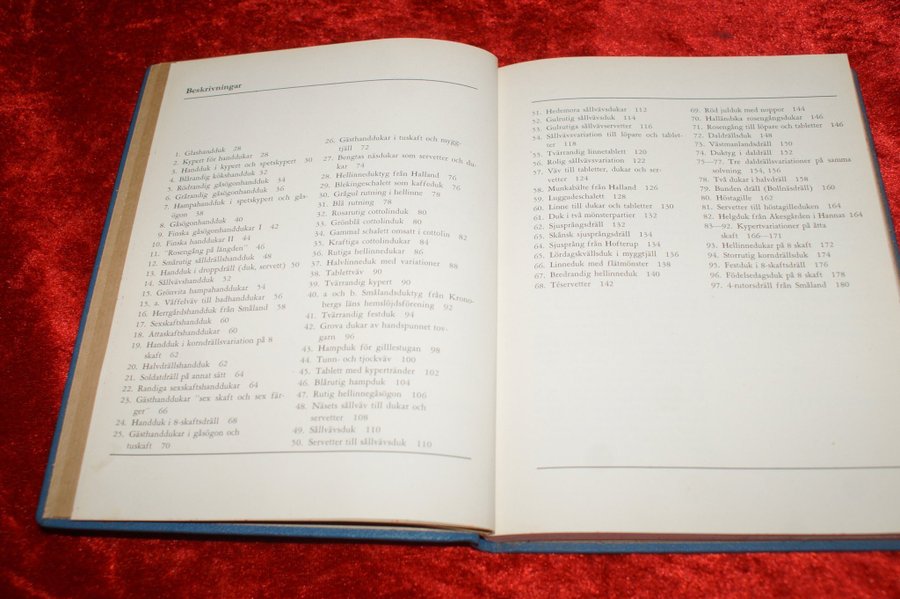 Beskrivningar
1. Glashandduk 28
2. Kypert för handdukar 28
3. Handduk i kypert och spetskypert 30
4. Blårandig kökshandduk 32
5. Rödrandig gåsögonhandduk 34
6. Grårandig gåsögonhandduk 36
7. Hampahandduk i spetskypert och gås-
ögon 38
8. Gåsögonhandduk 40
9. Finska gåsögonhanddukar I 42
10. Finska handdukar II 44
11. "Rosengång på längden" 46
12. Smårutig sålldrällshandduk 48
13. Handduk i droppdräll (duk, servett) 50
14. Sållvävshandduk 52
15. Grönvita hampahanddukar 54
15. a. Våffelväv till badhanddukar 56
16. Herrgårdshandduk från Småland 58
17. Sexskaftshandduk 60
18. Åttaskaftshanddukar 60
19. Handduk i korndrällsvariation på 8
skaft 62
20. Halvdrällshandduk 62
21. Soldatdräll på annat sätt 64
22. Randiga sexskaftshanddukar 64
23. Gästhanddukar "sex skaft och sex fär-
ger" 66
24. Handduk i 8-skaftsdräll 68
25. Gästhanddukar i gåsögon och
tuskaft 70
26. Gästhanddukar i tuskaft och mygg-
tjäll 72
27. Bengtas näsdukar som servetter och du-
kar 74
28. Hellinneduktyg från Halland 76
29. Blekingeschalett som kaffeduk 76
30. Grågul rutning i hellinne 78
31. Blå rutning 78
32. Rosarutig cottolinduk 80
33. Grönblå cottolinduk 80
34. Gammal schalett omsatt i cottolin 82
35. Kraftiga cottolindukar 84
36. Rutiga hellinnedukar 86
37. Halvlinneduk med variationer 88
38. Tablettväv 90
39. Tvärrandig kypert 90
40. a och b. Smålandsduktyg från Krono-
bergs läns hemslöjdsförening 92
41. Tvärrandig festduk 94
42. Grova dukar av handspunnet tov-
garn 96
43. Hampduk för gilllestugan 98
44. Tunn- och tjockväv 100
45. Tablett med kypertränder 102
46. Blårutig hampduk 104
47. Rutig hellinnegåsögon 106
48. Näsets sållväv till dukar och
servetter 108
49. Sållvävsduk 110
50. Servetter till sållvävsduk 110
51. Hedemora sållvävsdukar 112
52. Gulrutig sållvävsduk 114
53. Gulrutiga sållvävsservetter 116
54. Sållvävsvariation till löpare och tablet-
ter 118
55. Tvärrandig linnetablett 120
56. Rolig sållvävsvariation 122
57. Väv till tabletter, dukar och ser-
vetter 124
58. Munkabälte från Halland 126
59. Luggudeschalett 128
60. Linne till dukar och tabletter 130
61. Duk i två mönsterpartier 132
62. Sjusprångsdräll 132
63. Skånsk sjusprångsdräll 134
64. Sjusprång från Hofterup 134
65. Lördagskvällsduk i myggtjäll 136
66. Linneduk med flätmönster 138
67. Bredrandig hellinneduk 140
68. Téservetter 142
69. Röd julduk med noppor 144
70. Halländska rosengångsdukar 146
71. Rosengång till löpare och tabletter 146
72. Daldrällsduk 148
73. Västmanlandsdräll 150
74. Duktyg i daldräll 152
75—77. Tre daldrällsvariationer på samma
solvning 154, 156
78. Två dukar i halvdräll 158
79. Bunden dräll (Bollnäsdräll) 160
80. Höstagille 162
81. Servetter till höstagilleduken 162
82. Helgduk från Akesgården i Hannas 164
83—92. Kypertvariationer på åtta
skaft 166—171
93. Hellinnedukar på 8 skaft 172
94. Storrutig korndrällsduk 174
95. Festduk i 8-skaftsdräll 176
96. Födelsedagsduk på 8 skaft 178
97. 4-rutorsdräll från Småland 180